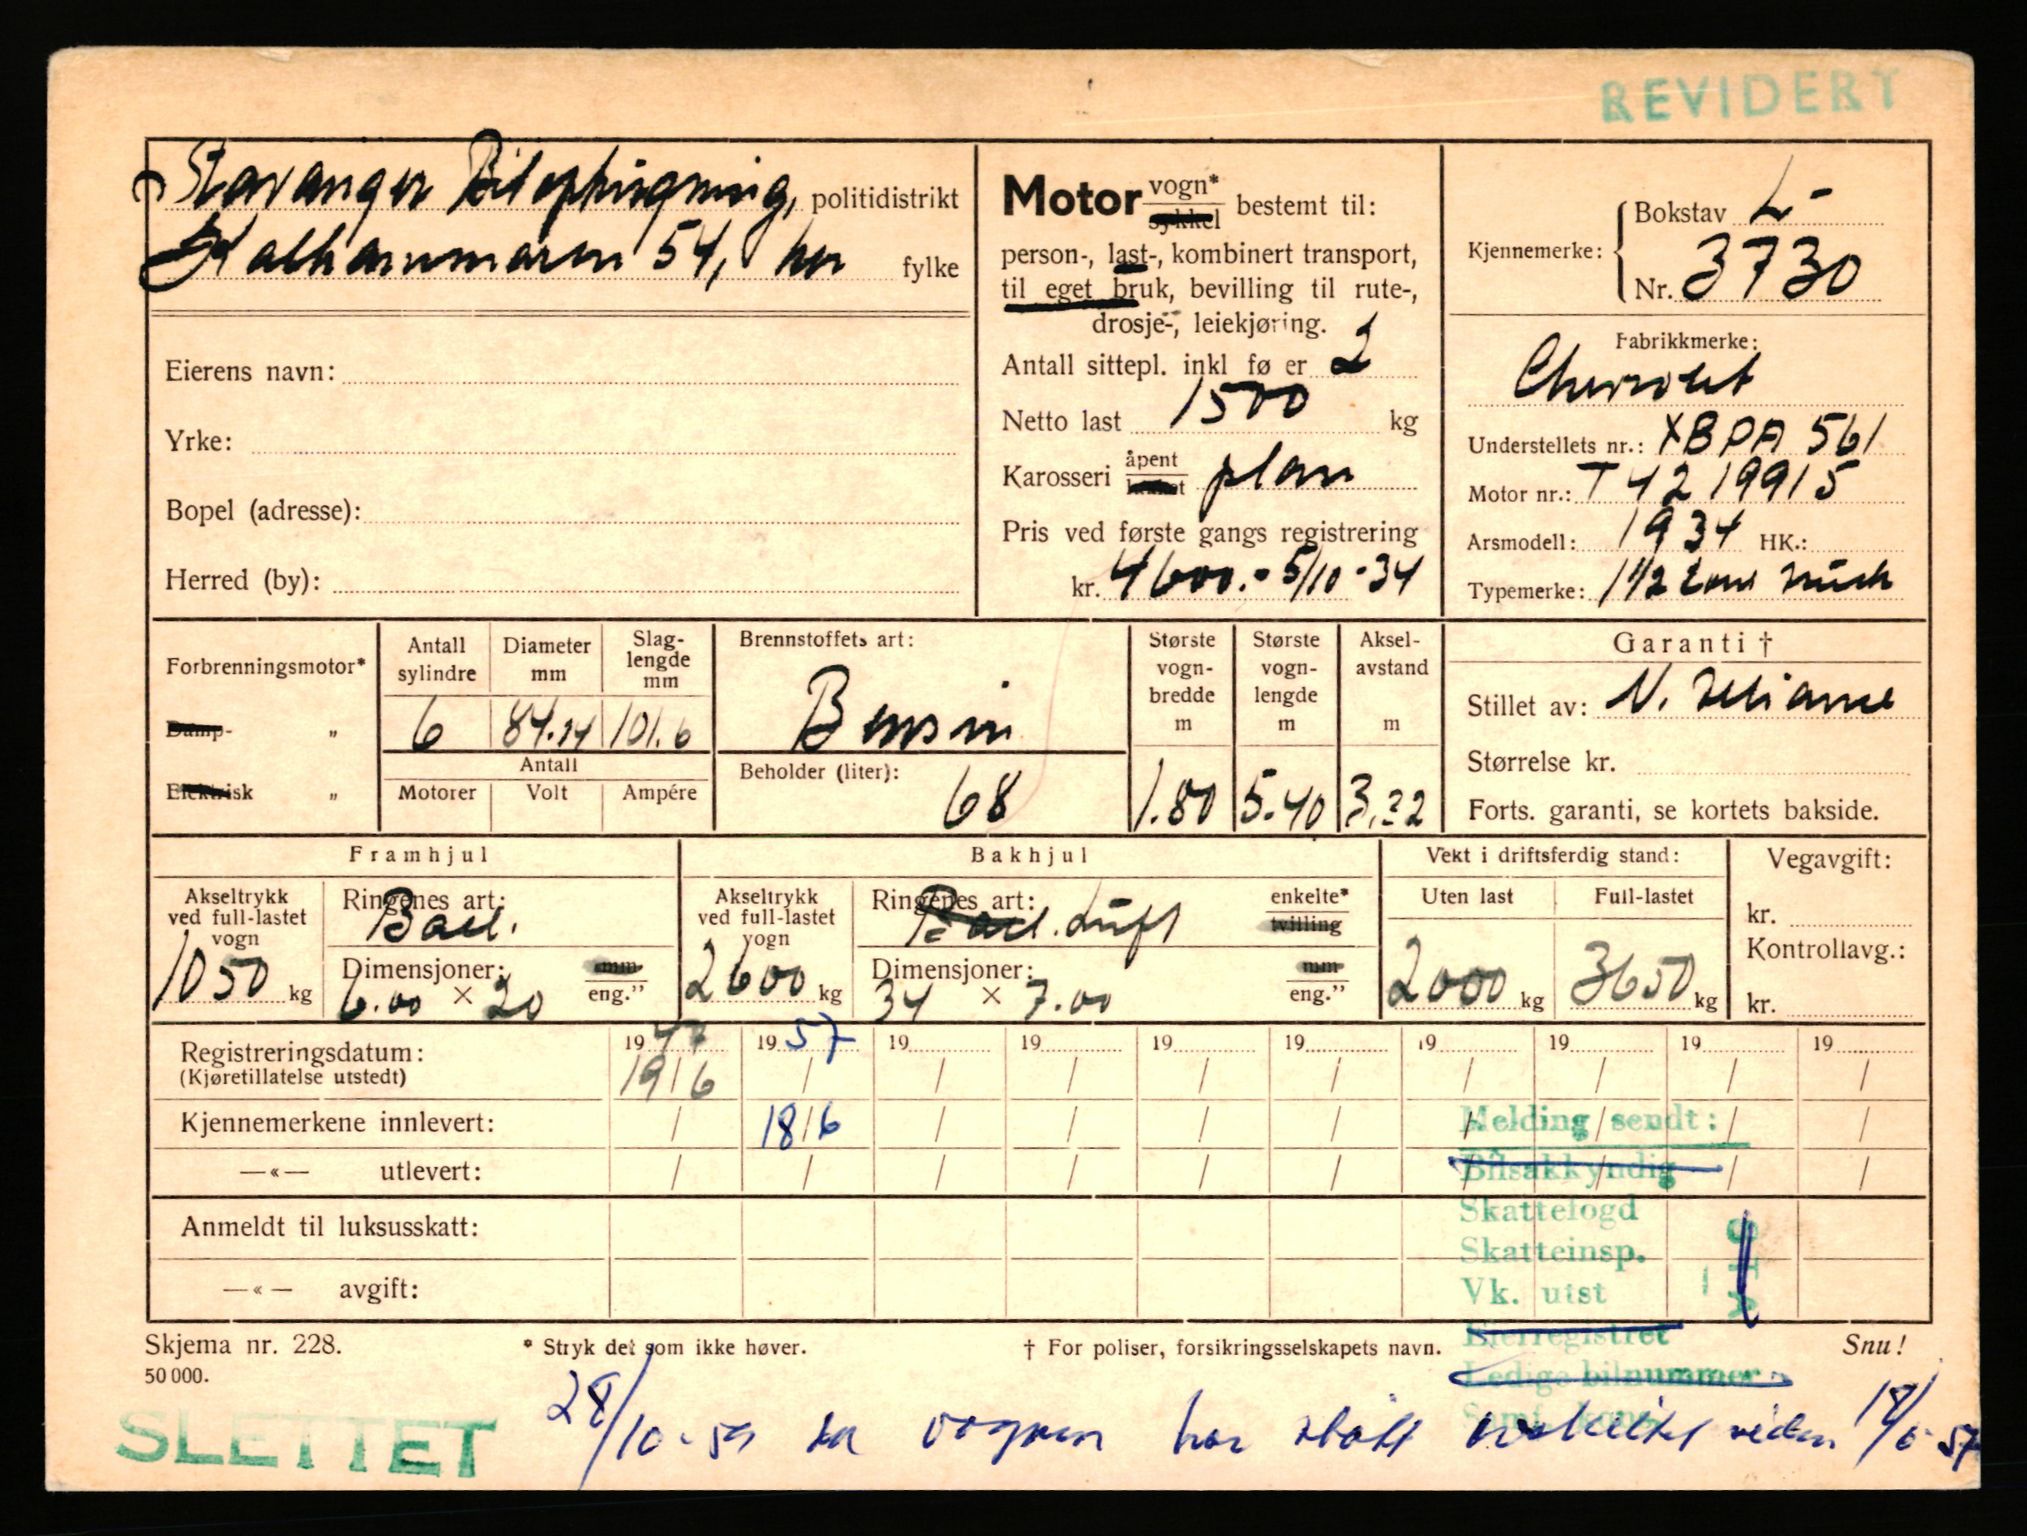 REVIDERT
Stavanger Bilophugning, politidistrikt
Kalhammaren 54, her fylke
Eierens navn:
Yrke:
Bopel (adresse):
Herred (by):
Motor vogn* sykkel bestemt til:
person-, last-, kombinert transport,
til eget bruk, bevilling til rute-,
drosje-, leiekjøring.
Antall sittepl. inkl fø er 2
Netto last 1500 kg
Karosseri åpent plan
Pris ved første gangs registrering
kr. 4600.- 5/10-34
Kjennemerke: Bokstav L-
Nr. 3730
Fabrikkmerke:
Chevrolet
Understellets nr.: XBPA 561
Motor nr.: T 4219915
Arsmodell: 1934 HK.:
Typemerke: 1 1/2 tons truck
Forbrenningsmotor*
Damp- "
Elektrisk "
Antall sylindre
6
Diameter mm
84.14
Slag-lengde mm
101.6
Antall
Motorer Volt Ampére
Brennstoffets art:
Bensin
Beholder (liter):
68
Største vogn-bredde m
1.80
Største vogn-lengde m
5.40
Aksel-avstand m
3.32
Garanti †
Stillet av: N.
Størrelse kr.
Forts. garanti, se kortets bakside.
Framhjul
Akseltrykk ved full-lastet vogn
1050 kg
Ringenes art:
Ball.
Dimensjoner: mm eng."
6.00 × 20
Bakhjul
Akseltrykk ved full-lastet vogn
2600 kg
Ringenes art: enkelte* tvilling
Ball. Luft
Dimensjoner: mm eng."
34 × 7.00
Vekt i driftsferdig stand:
Uten last Full-lastet
2000 kg 3650 kg
Vegavgift:
kr.
Kontrollavg.:
kr.
Registreringsdatum: 1947 1957 19 19 19 19 19 19 19 19
(Kjøretillatelse utstedt) 19/6 / / / / / / / / /
Kjennemerkene innlevert: / 18/6 / / / / / / / /
—«— utlevert: / / / / / / / / / /
Anmeldt til luksusskatt:
—«— avgift:
Melding sendt:
Bilsakkyndig
Skattefogd
Skatteinsp.
Vk. utst
Eierregistret
Ledige bilnummer
Skjema nr. 228.
50 000.
* Stryk det som ikke høver.
† For poliser, forsikringsselskapets navn.
Snu!
SLETTET
28/10-59 da vognen har stått avskiltet siden 18/6-57